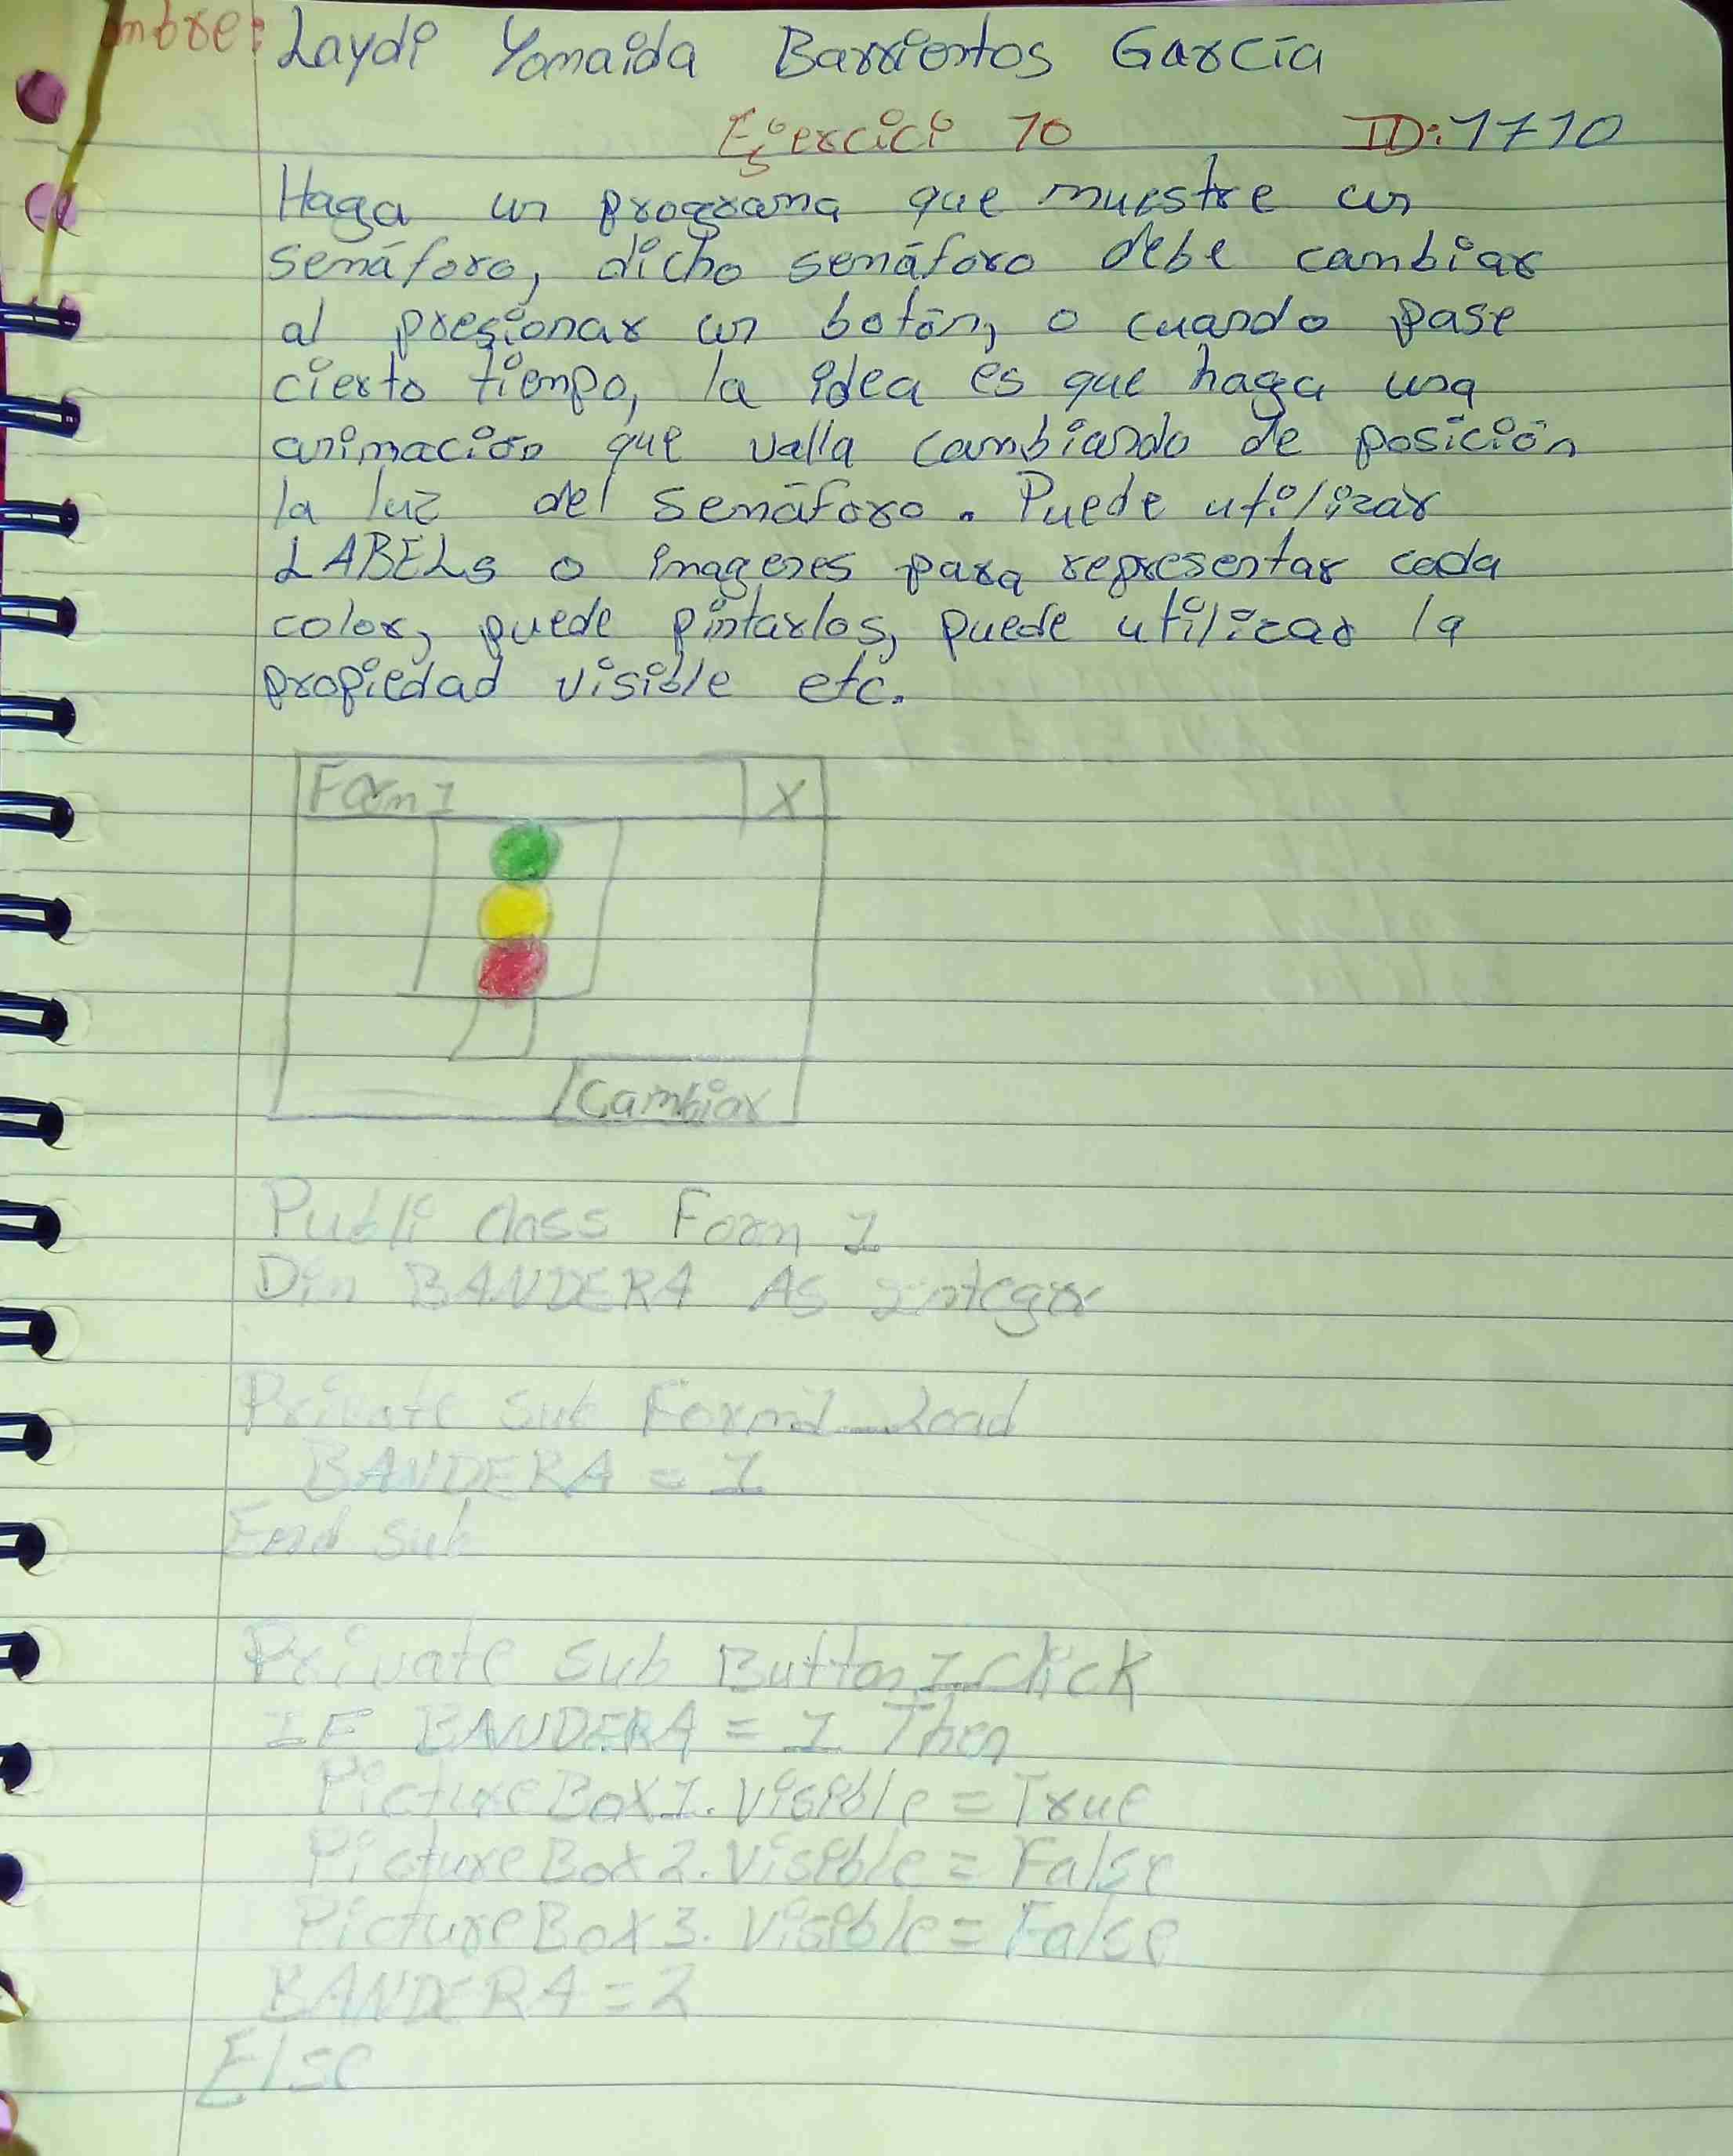 mbre: Laydi Yomaida Barrientos García
Ejercici 10 ID:1710
Haga un programa que muestre un
semáforo, dicho semáforo debe cambiar
al presionar un botón, o cuando pase
cierto tiempo, la idea es que haga una
animación que valla cambiando de posición
la luz del semáforo. Puede utilizar
LABELs o imagenes para representar cada
color, puede pintarlos, puede utilizar la
propiedad visible etc.
Form 1 X
Cambiar
Publi class Form 1
Dim BANDERA As Integer
Private sub Form1_Load
BANDERA = 1
End sub
Private sub Button1_Click
IF BANDERA = 1 Then
PictureBox1.Visible = True
PictureBox2.Visible = False
PictureBox3.Visible = False
BANDERA = 2
Else